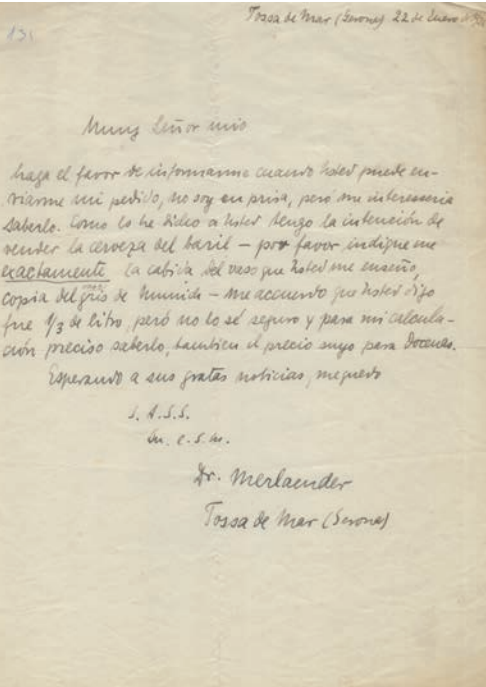 131
Tossa de Mar (Gerona) 22 de Enero
Muny Señor mio
haga el favor de informarme cuando Usted puede en-
viarme mi pedido, no soy en prisa, peró me interesaria
saberlo. Como lo he dicho a Usted tengo la intención de
vender la cerveza del baril – por favor indique me
exactamente la cabida del vaso que Usted me enseño,
copia del gris de Munich – me acuerdo que Usted digo
fue 1/3 de litro, peró no lo sé seguro y para mi calcula-
ción preciso saberlo, tambien el precio suyo para Docenas.
Esperando a sus gratas noticias, me quedo
S. A. S. S.
q. e. s. m.
Dr. Merlaender
Tossa de Mar (Gerona)